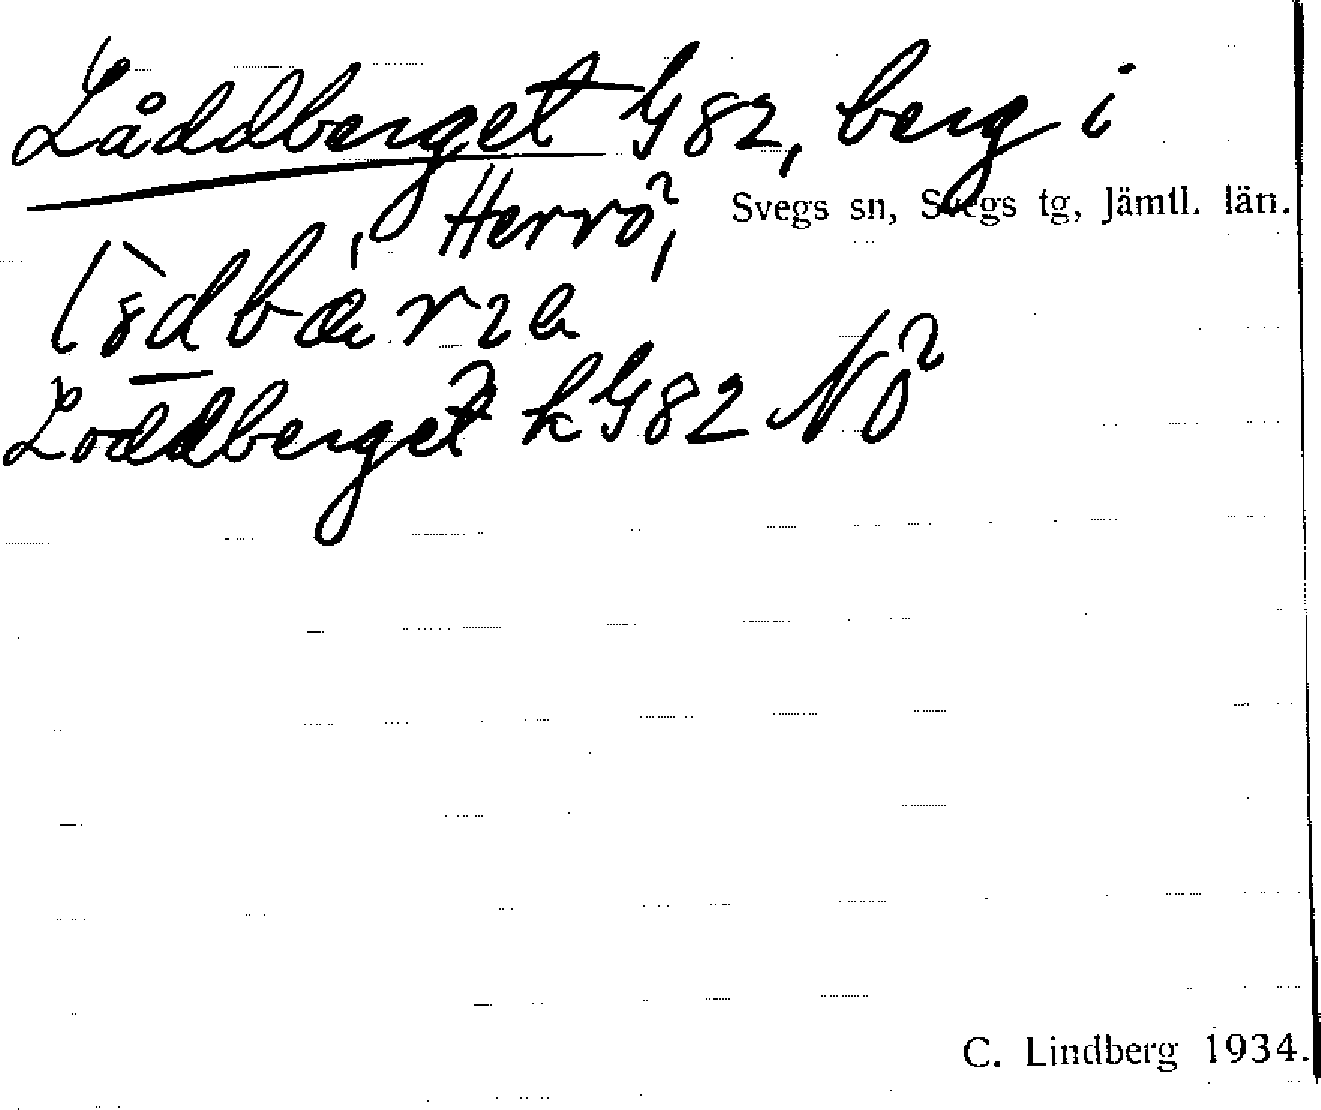 Låddberget G82, berg i
Herrö, Svegs sn, Svegs tg, Jämtl. län.
Loddberget kG82 NÖ
C. Lindberg 1934.